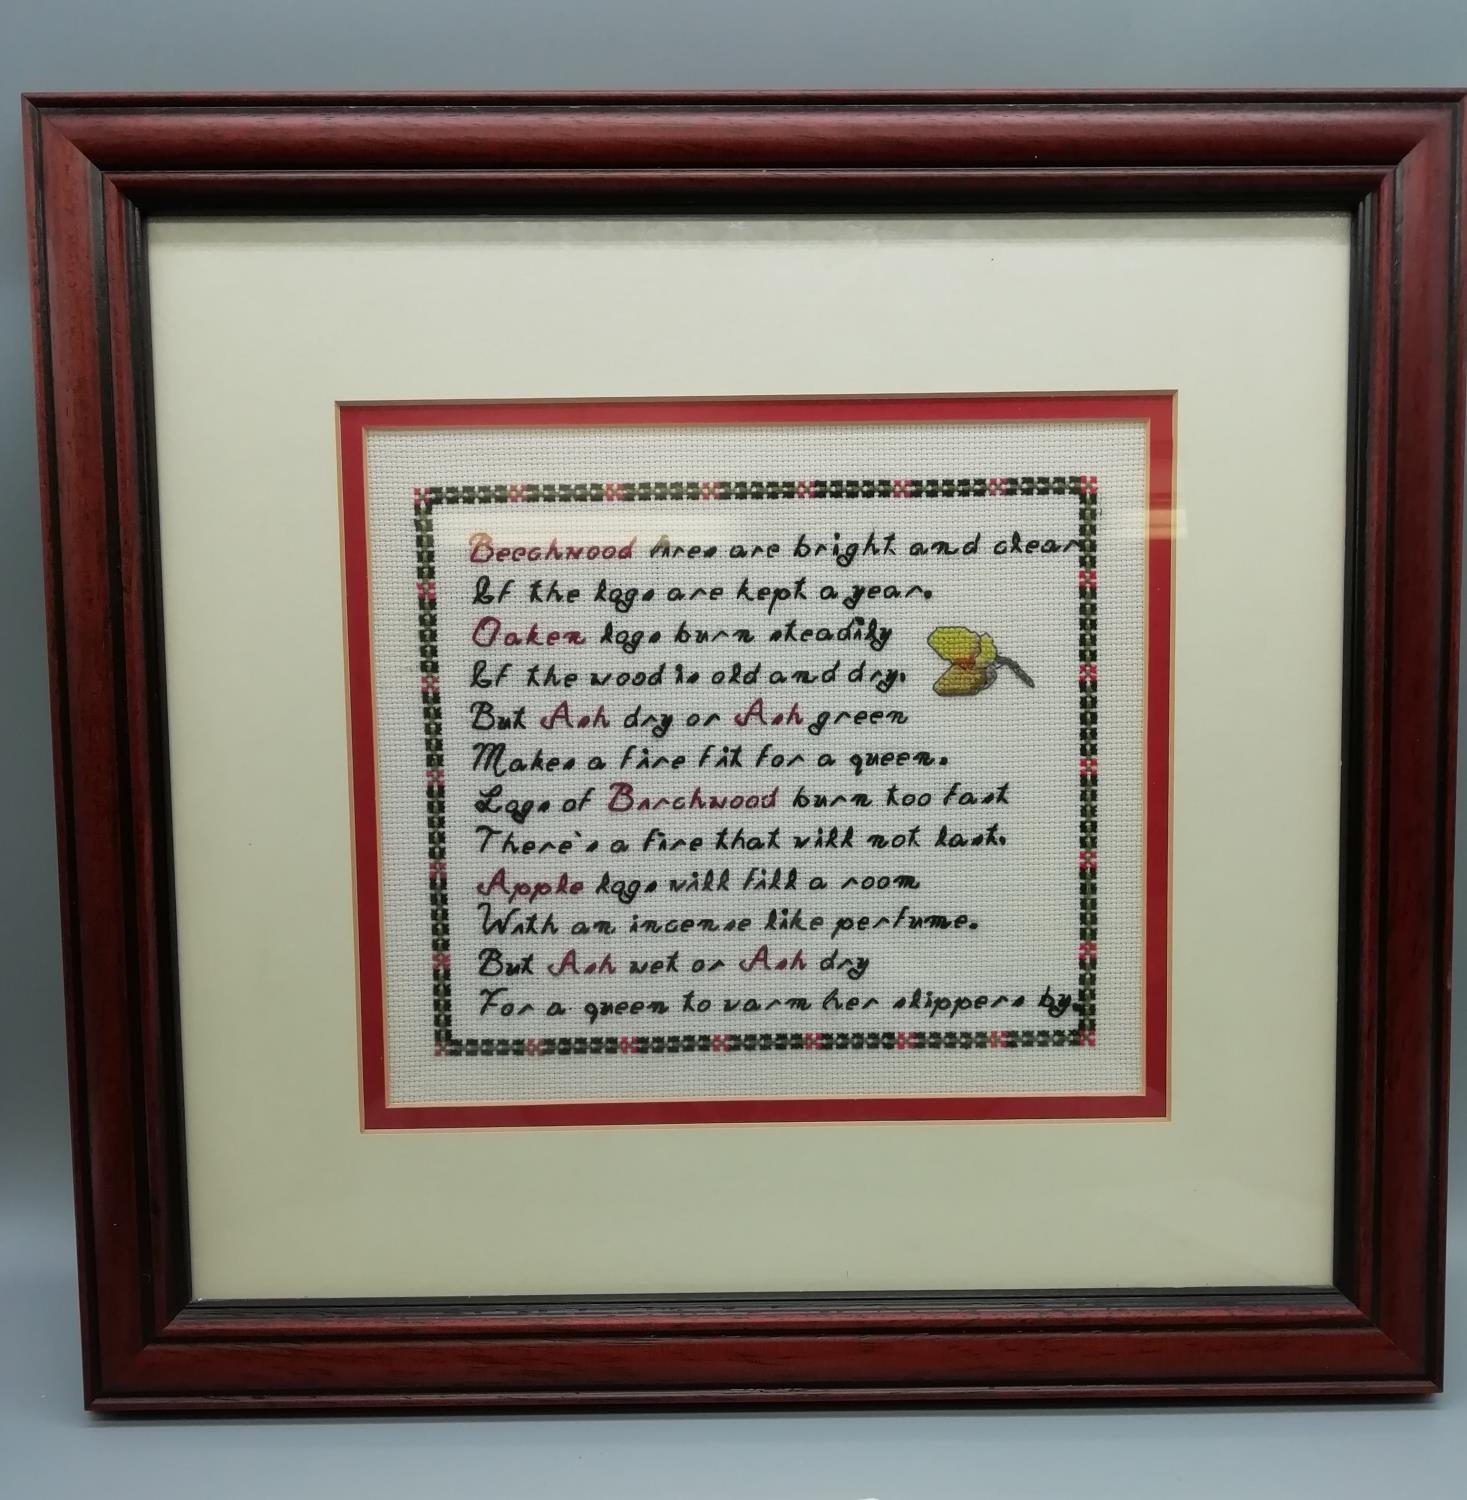 Beechwood fires are bright and clear
If the logs are kept a year.
Oaken logs burn steadily
If the wood is old and dry.
But Ash dry or Ash green
Makes a fire fit for a queen.
Logs of Birchwood burn too fast
There's a fire that will not last.
Apple logs will fill a room
With an incense like perfume.
But Ash wet or Ash dry
For a queen to warm her slippers by.